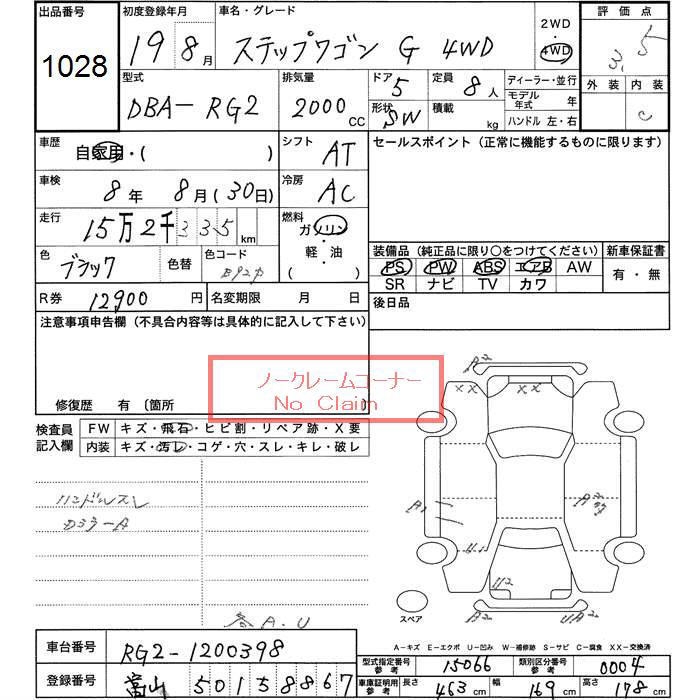 出品番号 初度登録年月 車名・グレード 2WD 評価点
1028 19 8月 ステップワゴン G 4WD 4WD 3.5
型式 排気量 ドア 定員 ディーラー・並行 外装 内装
DBA-RG2 2000CC 5 8人 モデル年式 年 C
形状 SW 積載 kg ハンドル 左・右
車歴 自家用・( ) シフト AT セールスポイント(正常に機能するものに限ります)
車検 8年 8月(30日) 冷房 AC
走行 15万2千335km 燃料 ガソリン・軽・油( )
色 ブラック 色替 色コード B92P
装備品(純正品に限り○をつけてください) 新車保証書
PS PW ABS エアB AW 有・無
SR ナビ TV カワ
R券 12900円 名変期限 月 日 後日品
注意事項申告欄(不具合内容等は具体的に記入して下さい)
ノークレームコーナー
No Claim
修復歴 有〔箇所 〕
検査員記入欄 FW キズ・飛石・ヒビ割・リペア跡・X要
内装 キズ・汚レ・コゲ・穴・スレ・キレ・破レ
ハンドルスレ
A2
XX
A1
U1
U2
各A.U
スペア
A-キズ E-エクボ U-凹み W-補修跡 S-サビ C-腐食 XX-交換済
車台番号 RG2-1200398
型式指定番号参考 15066 類別区分番号参考 0004
登録番号 富山 50158867
車庫証明用参考 長さ 463cm 幅 169cm 高さ 178cm